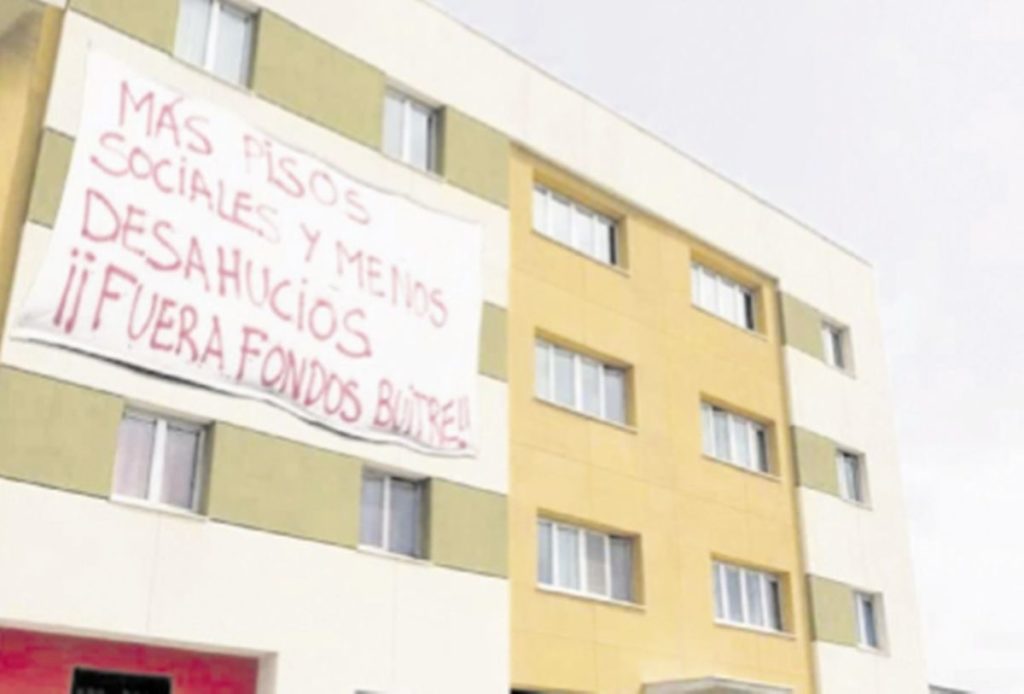 MÁS PISOS
SOCIALES Y MENOS
DESAHUCIOS
¡¡FUERA FONDOS BUITRE!!